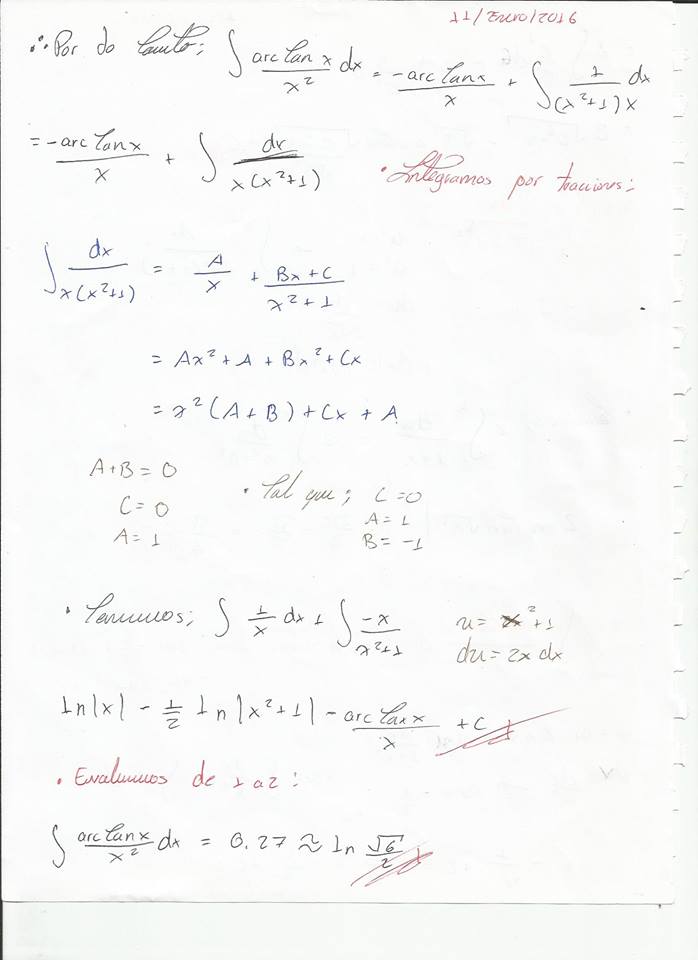 11/Enero/2016
∴ Por do tanto; ∫ arc tan x / x² dx = -arc tan x / x + ∫ 1 / (x²+1)x dx
= -arc tan x / x + ∫ dx / x(x²+1)
• Integramos por fracciones;
∫ dx / x(x²+1) = A / x + Bx + C / x²+1
= Ax² + A + Bx² + Cx
= x²(A+B) + Cx + A
A+B = 0
C = 0
A = 1
• Tal que; C = 0
A = 1
B = -1
• Tenemos; ∫ 1/x dx + ∫ -x / x²+1
u = x²+1
du = 2x dx
ln|x| - 1/2 ln|x²+1| - arc tan x / x + c
• Evaluamos de 1 a 2:
∫ arc tan x / x² dx = 0.27 ≈ ln √6 / 2